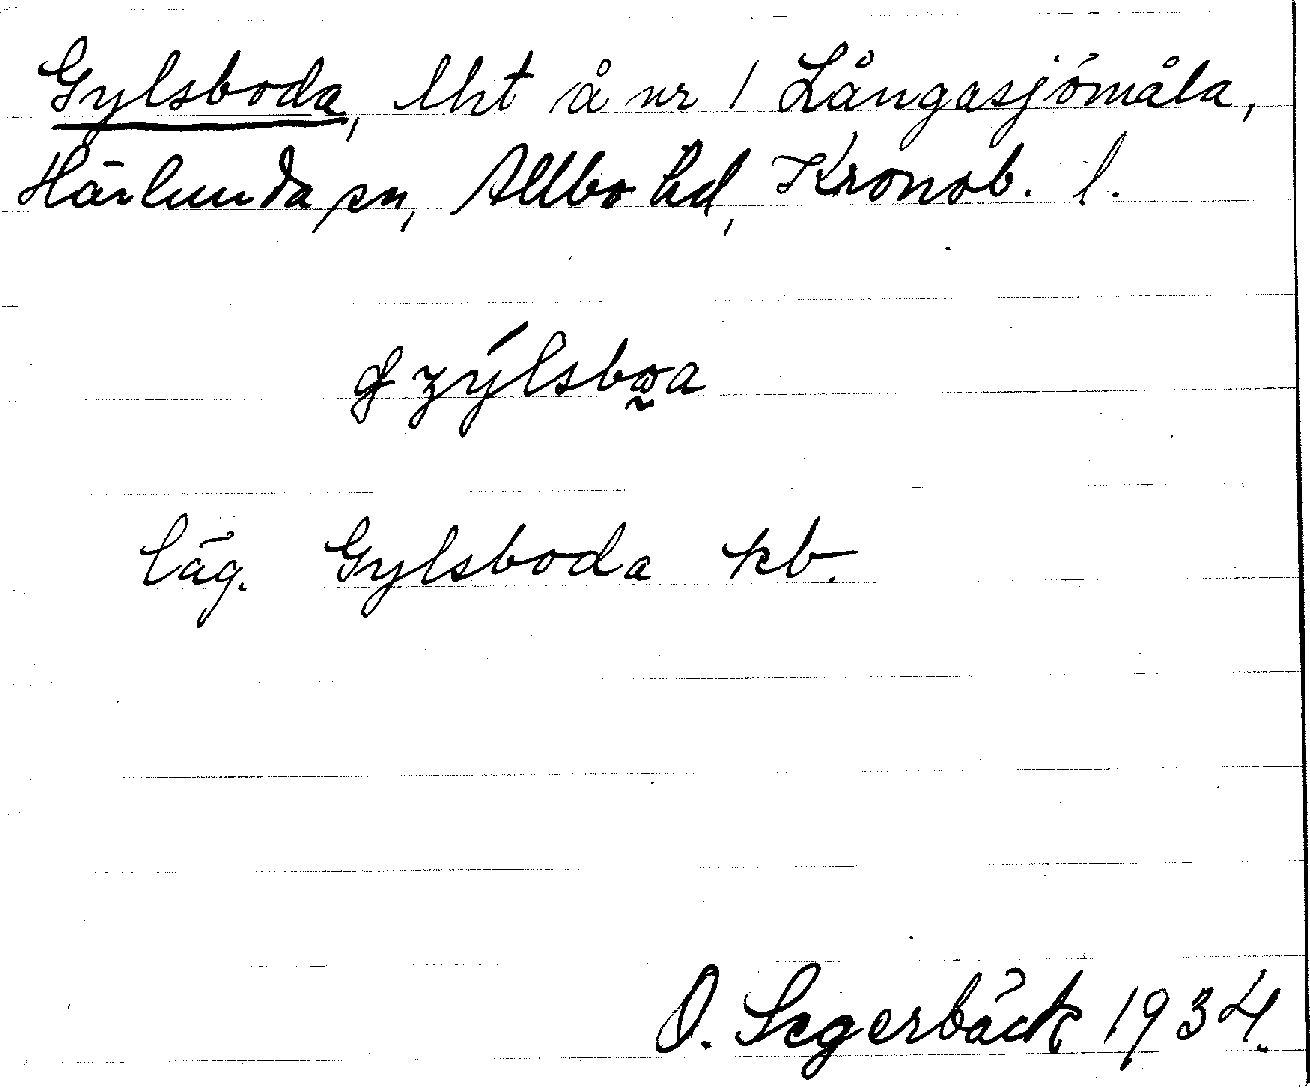 Gylsboda, lht å nr 1 Långasjömåla,
Härlunda sn, Allbo hd, Kronob. l.
Läg. Gylsboda kb.
O. Segerbäck 1934.